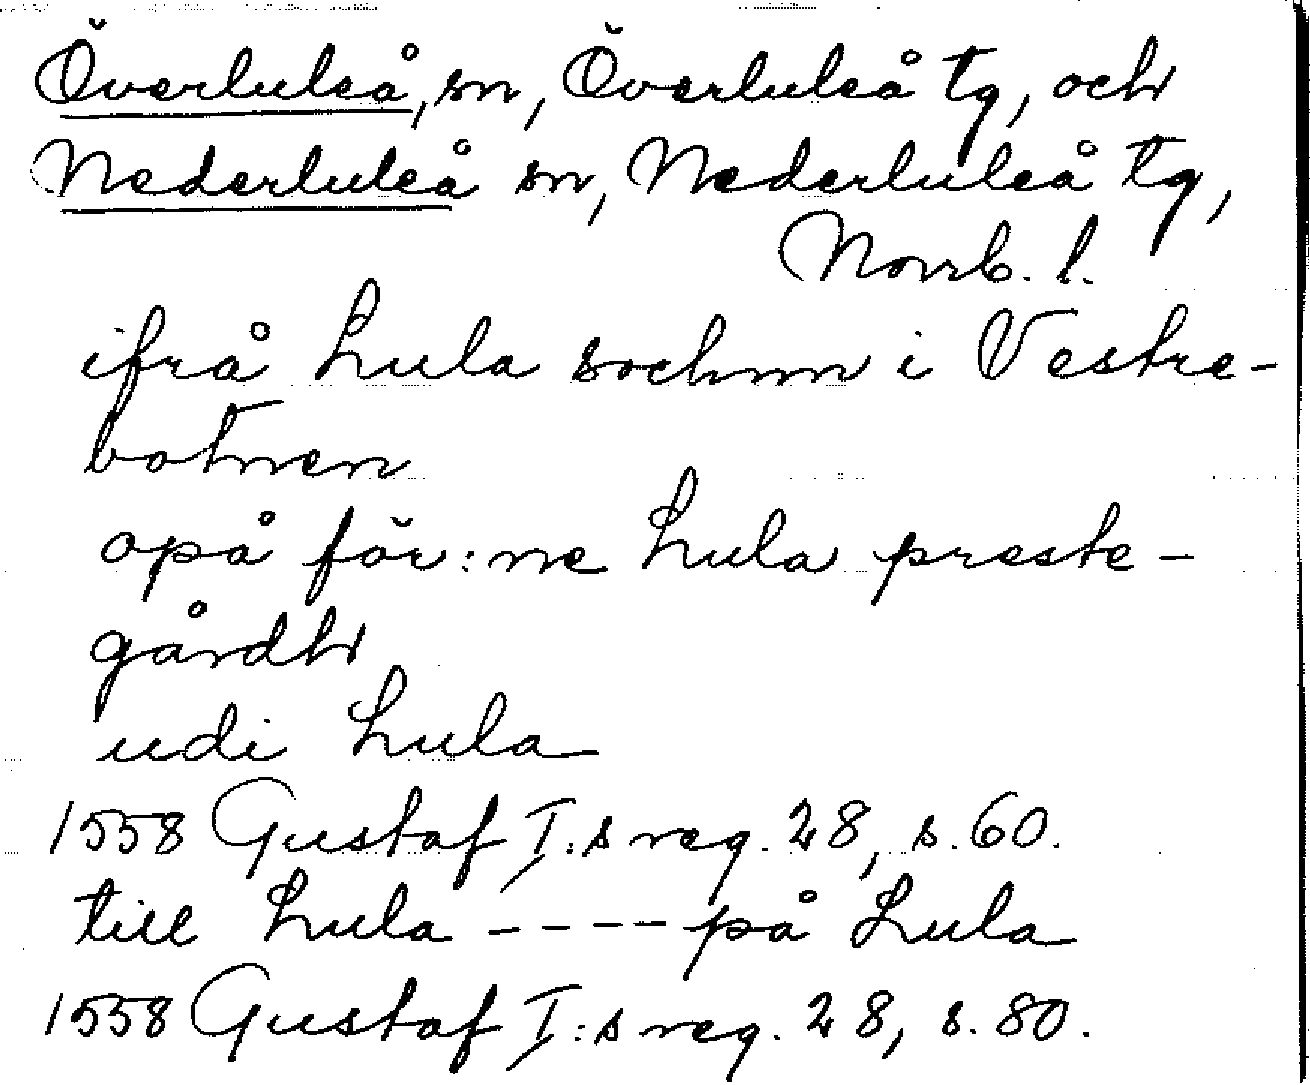 Överluleå, sn, Överluleå tg, och
Nederluleå sn, Nederluleå tg,
Norrb. l.
ifrå Lula sochnn i Vestre-
botnen
opå för:ne Lula preste-
gårdh
udi Lula
1558 Gustaf I:s reg. 28, s. 60.
till Lula ---- på Lula
1558 Gustaf I:s reg. 28, s. 80.